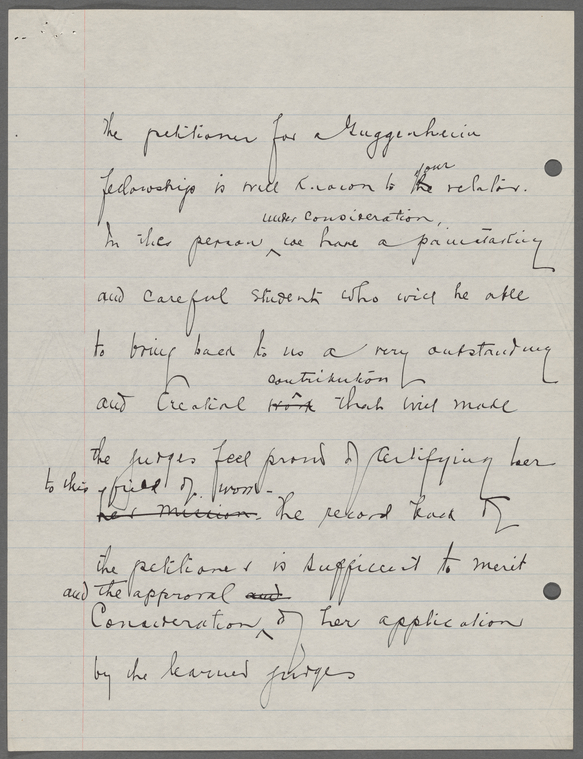 The petitioner for a Guggenheim
your
fellowship is well known to the relator.
under consideration,
In this person ‸ we have a painstaking
and careful student who will be able
to bring back to us a very outstanding
contribution
and creative work that will make
the judges feel proud of certifying her
to this field of work.
her mission. The record back of
the petitioner is sufficient to merit
and the approval and
Consideration ‸ of her application
by the learned judges